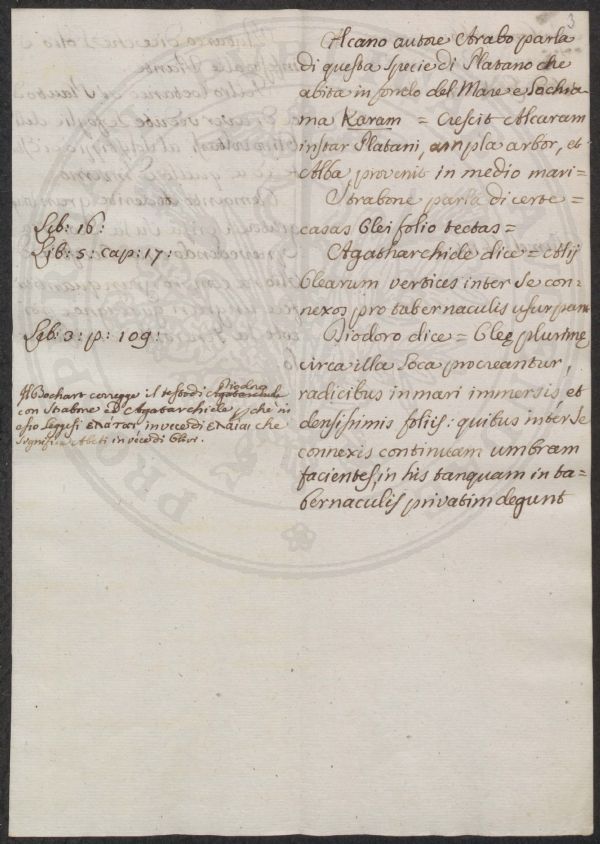 3
Alcano autore Arabo parla
di questa specie di Platano che
abita in fondo del Mare e lo chia=
ma Karam = Crescit Alcaram
instar Platani, ampla arbor, et
Alba provenit in medio mari=
Strabone parla di certe =
Lib: 16: casas Olei folio tectas=
Lib: 5: cap: 17: Agatharchide dice = Alij
Olearum vertices inter se con=
nexos pro tabernaculis usurpant
Lib: 3: p: 109: Diodoro dice = Oleę plurimę
circa illa loca procreantur,
radicibus in mari immersis, et
densissimis foliis: quibus inter se
connexis continuam umbram
facientes, in his tanquam in ta=
bernaculis privatim degunt
Il Bochart corregge il testo di Diodoro
con Strabone ed Agatarchide, che in
esso leggesi ΕΛΑΤΑΙ in vece di ΕΛΑΙΑΙ che
significa Abeti in vece di Olivi.
PROPRI